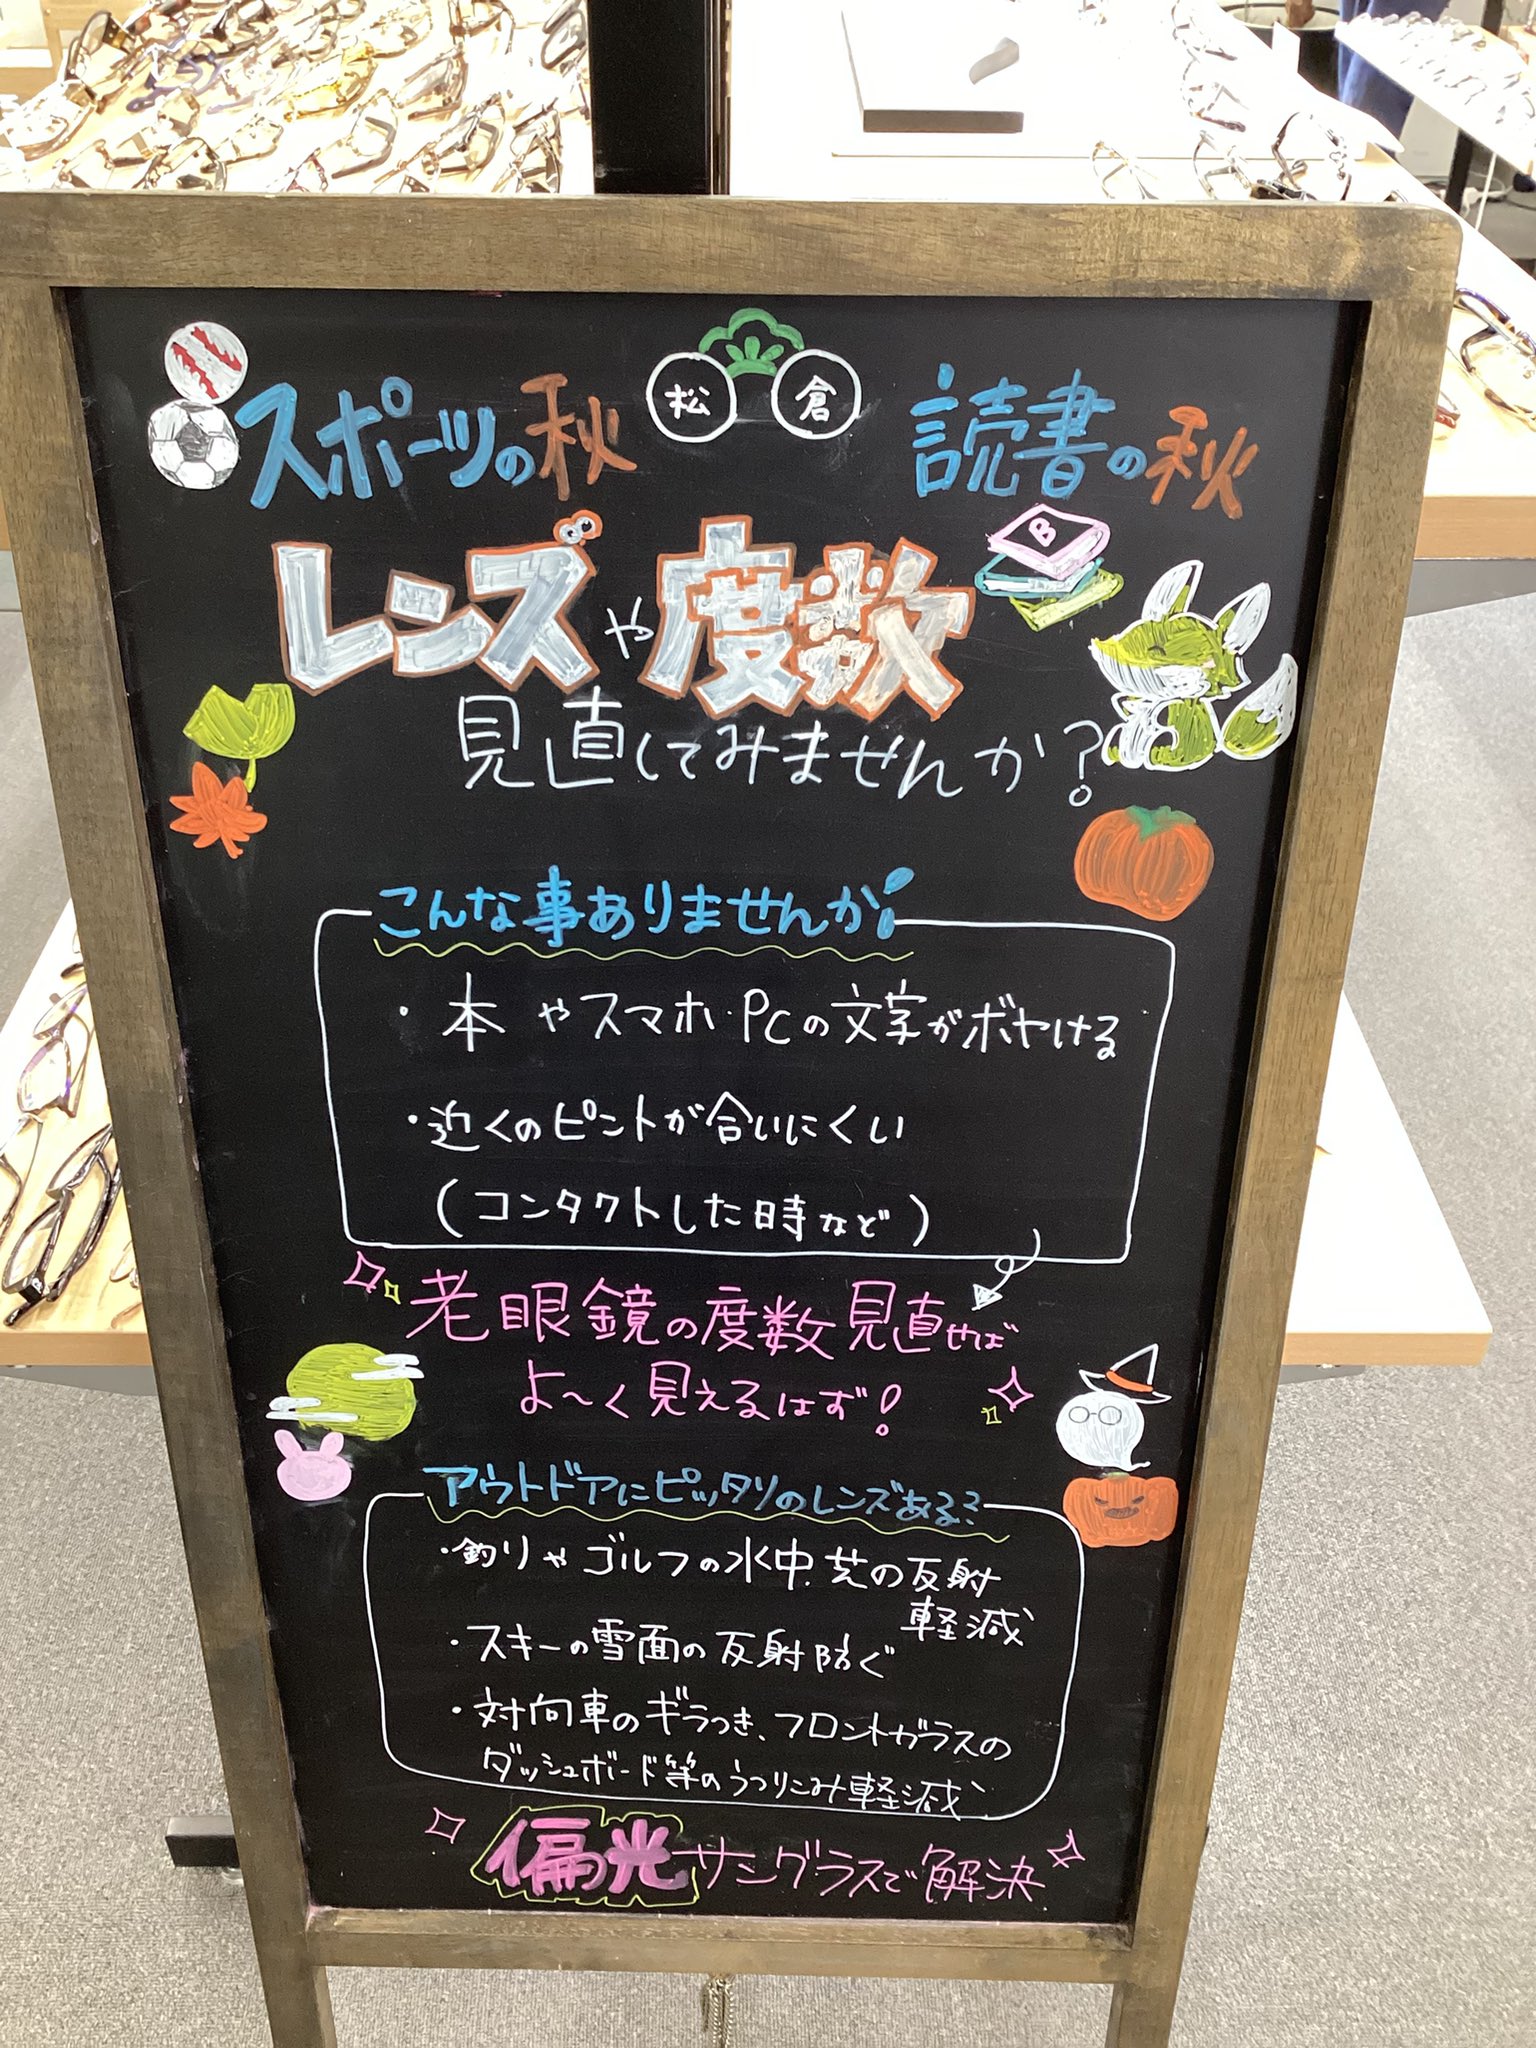 スポーツの秋
松倉
読書の秋
B
レンズや度数
見直してみませんか?
こんな事ありませんか!
・本やスマホ・PCの文字がボヤける
・近くのピントが合いにくい
(コンタクトした時など)
老眼鏡の度数見直せば
よ〜く見えるはず!
アウトドアにピッタリのレンズある?
・釣りやゴルフの水中、芝の反射
軽減
・スキーの雪面の反射防ぐ
・対向車のギラつき、フロントガラスの
ダッシュボード等のうつりこみ軽減
偏光サングラスで解決